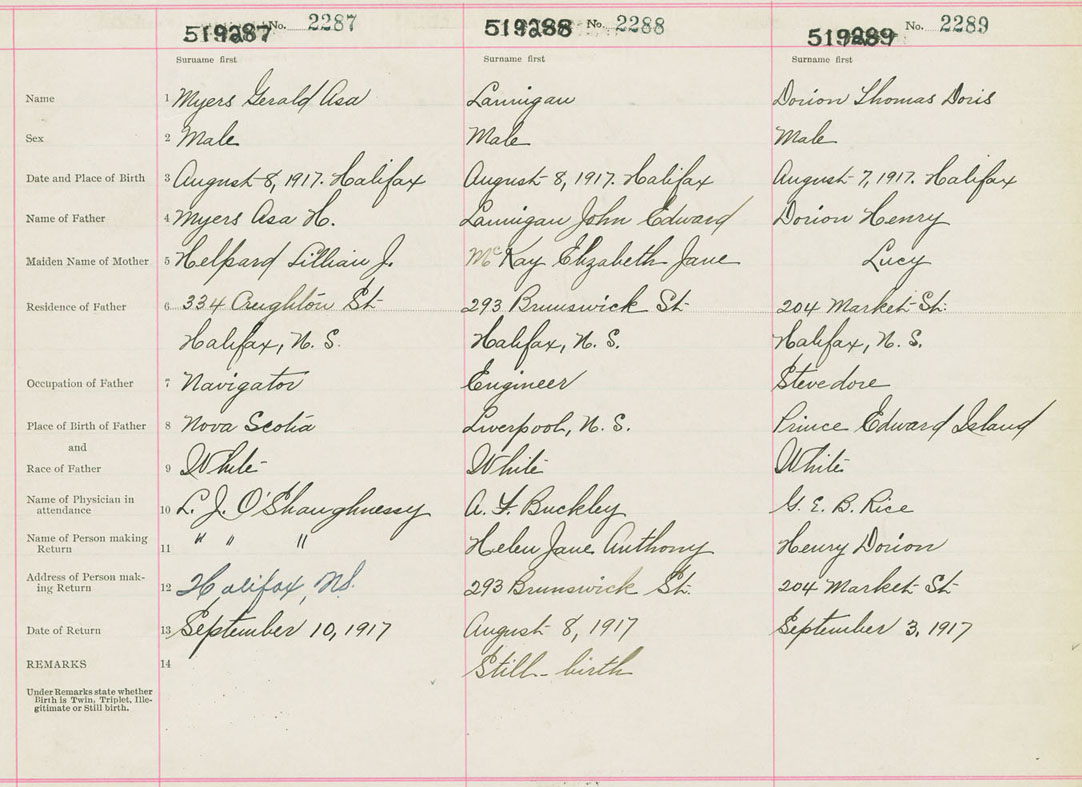 519287 No. 2287 519288 No. 2288 519289 No. 2289
Surname first Surname first Surname first
Name 1 Myers Gerald Asa Lannigan Dorion Thomas Doris
Sex 2 Male Male Male
Date and Place of Birth 3 August 8, 1917. Halifax August 8, 1917. Halifax August 7, 1917. Halifax
Name of Father 4 Myers Asa H. Lannigan John Edward Dorion Henry
Maiden Name of Mother 5 Helpard Lillian J. McKay Elizabeth Jane Lucy
Residence of Father 6 334 Creighton St. 293 Brunswick St. 204 Market St.
Halifax, N. S. Halifax, N. S. Halifax, N. S.
Occupation of Father 7 Navigator Engineer Stevedore
Place of Birth of Father 8 Nova Scotia Liverpool, N. S. Prince Edward Island
and
Race of Father 9 White White White
Name of Physician in
attendance 10 L. J. O'Shaughnessy A. F. Buckley G. E. B. Rice
Name of Person making
Return 11 " " " Helen Jane Anthony Henry Dorion
Address of Person mak-
ing Return 12 Halifax, NS. 293 Brunswick St. 204 Market St.
Date of Return 13 September 10, 1917 August 8, 1917 September 3, 1917
REMARKS 14 Still-birth
Under Remarks state whether
Birth is Twin, Triplet, Ille-
gitimate or Still birth.